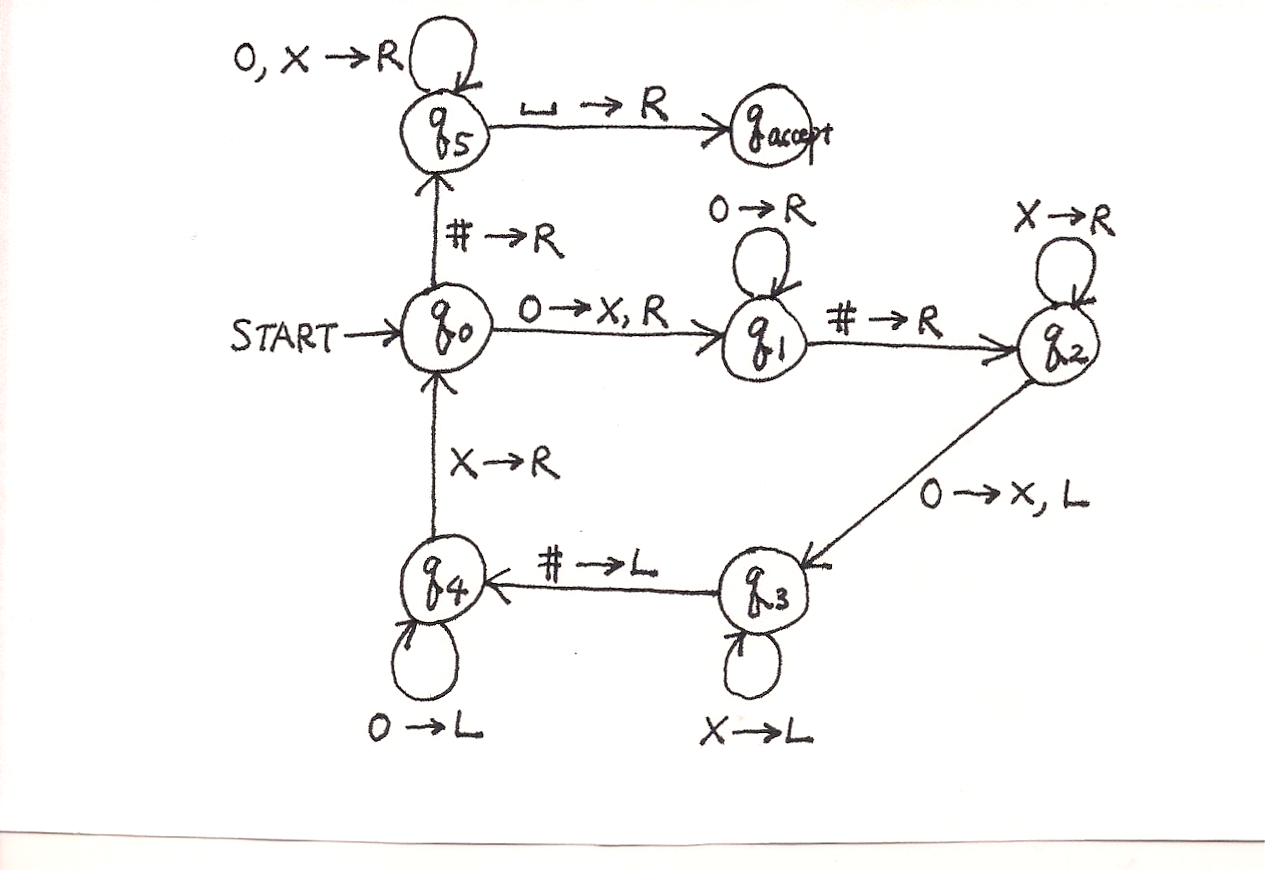 0, X → R
q5
⊔ → R
qaccept
# → R
0 → R
X → R
START
q0
0 → X, R
q1
# → R
q2
X → R
0 → X, L
q4
# → L
q3
0 → L
X → L